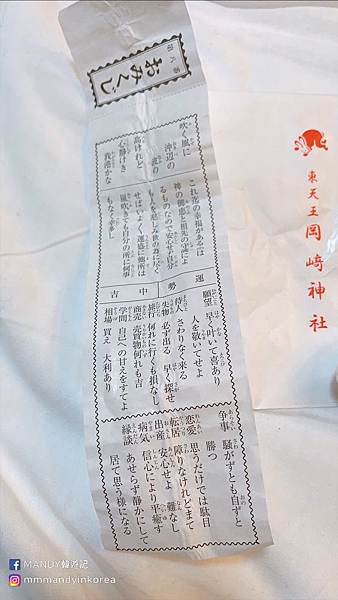 第八番
おみくじ
吹く風に
沖辺の
波の
高けれど
心静けき
我港かな
これ迄の幸福がある は
神の御恵と祖先の守によ
るものなので安心せず自分
も人を悲しみ世の為に尽く
せばいよいよ運盛に他所は
嵐吹きても自分の所に何事
もなく幸多し
運勢 中吉
願望 早く叶いて喜あり
人を敬いてせよ
待人 さわりなく来る
失物 必ず出る 早く探せ
旅行 何れに行くも損なし
商売 売買物何れも吉
学問 自己への甘えをすてよ
相場 買え 大利あり
争事 騒がずとも自ずと
勝つ
恋愛 思うだけでは駄目
転居 障りなけれどまて
出産 安心せよ 難なし
病気 信心により平癒す
縁談 あせらず静かにして
居て思う様になる
東天王 岡﨑神社
MANDY韓遊記
mmmandyinkorea